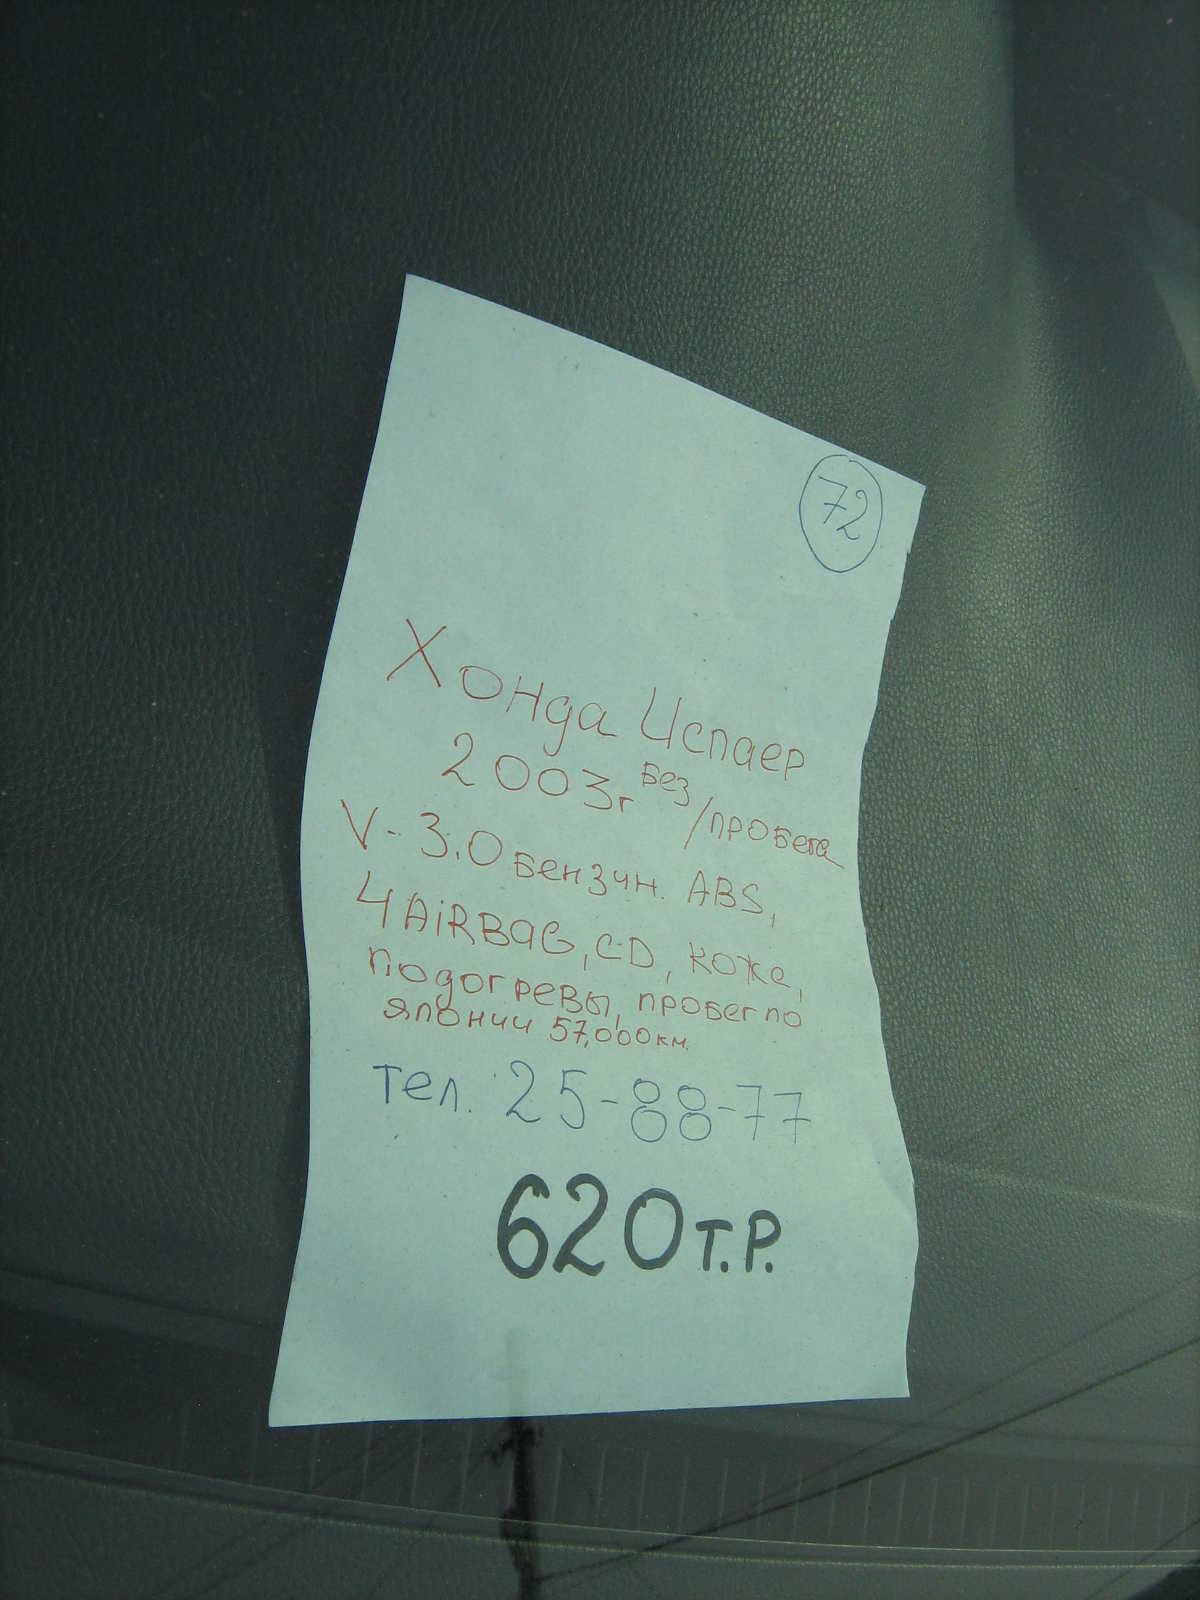 72
Хонда Испаер
2003г без/пробега
V-3.0 бензин. ABS,
4AiRBAG, CD, кожа,
подогревы, пробег по
японии 57,000км.
тел. 25-88-77
620т.р.